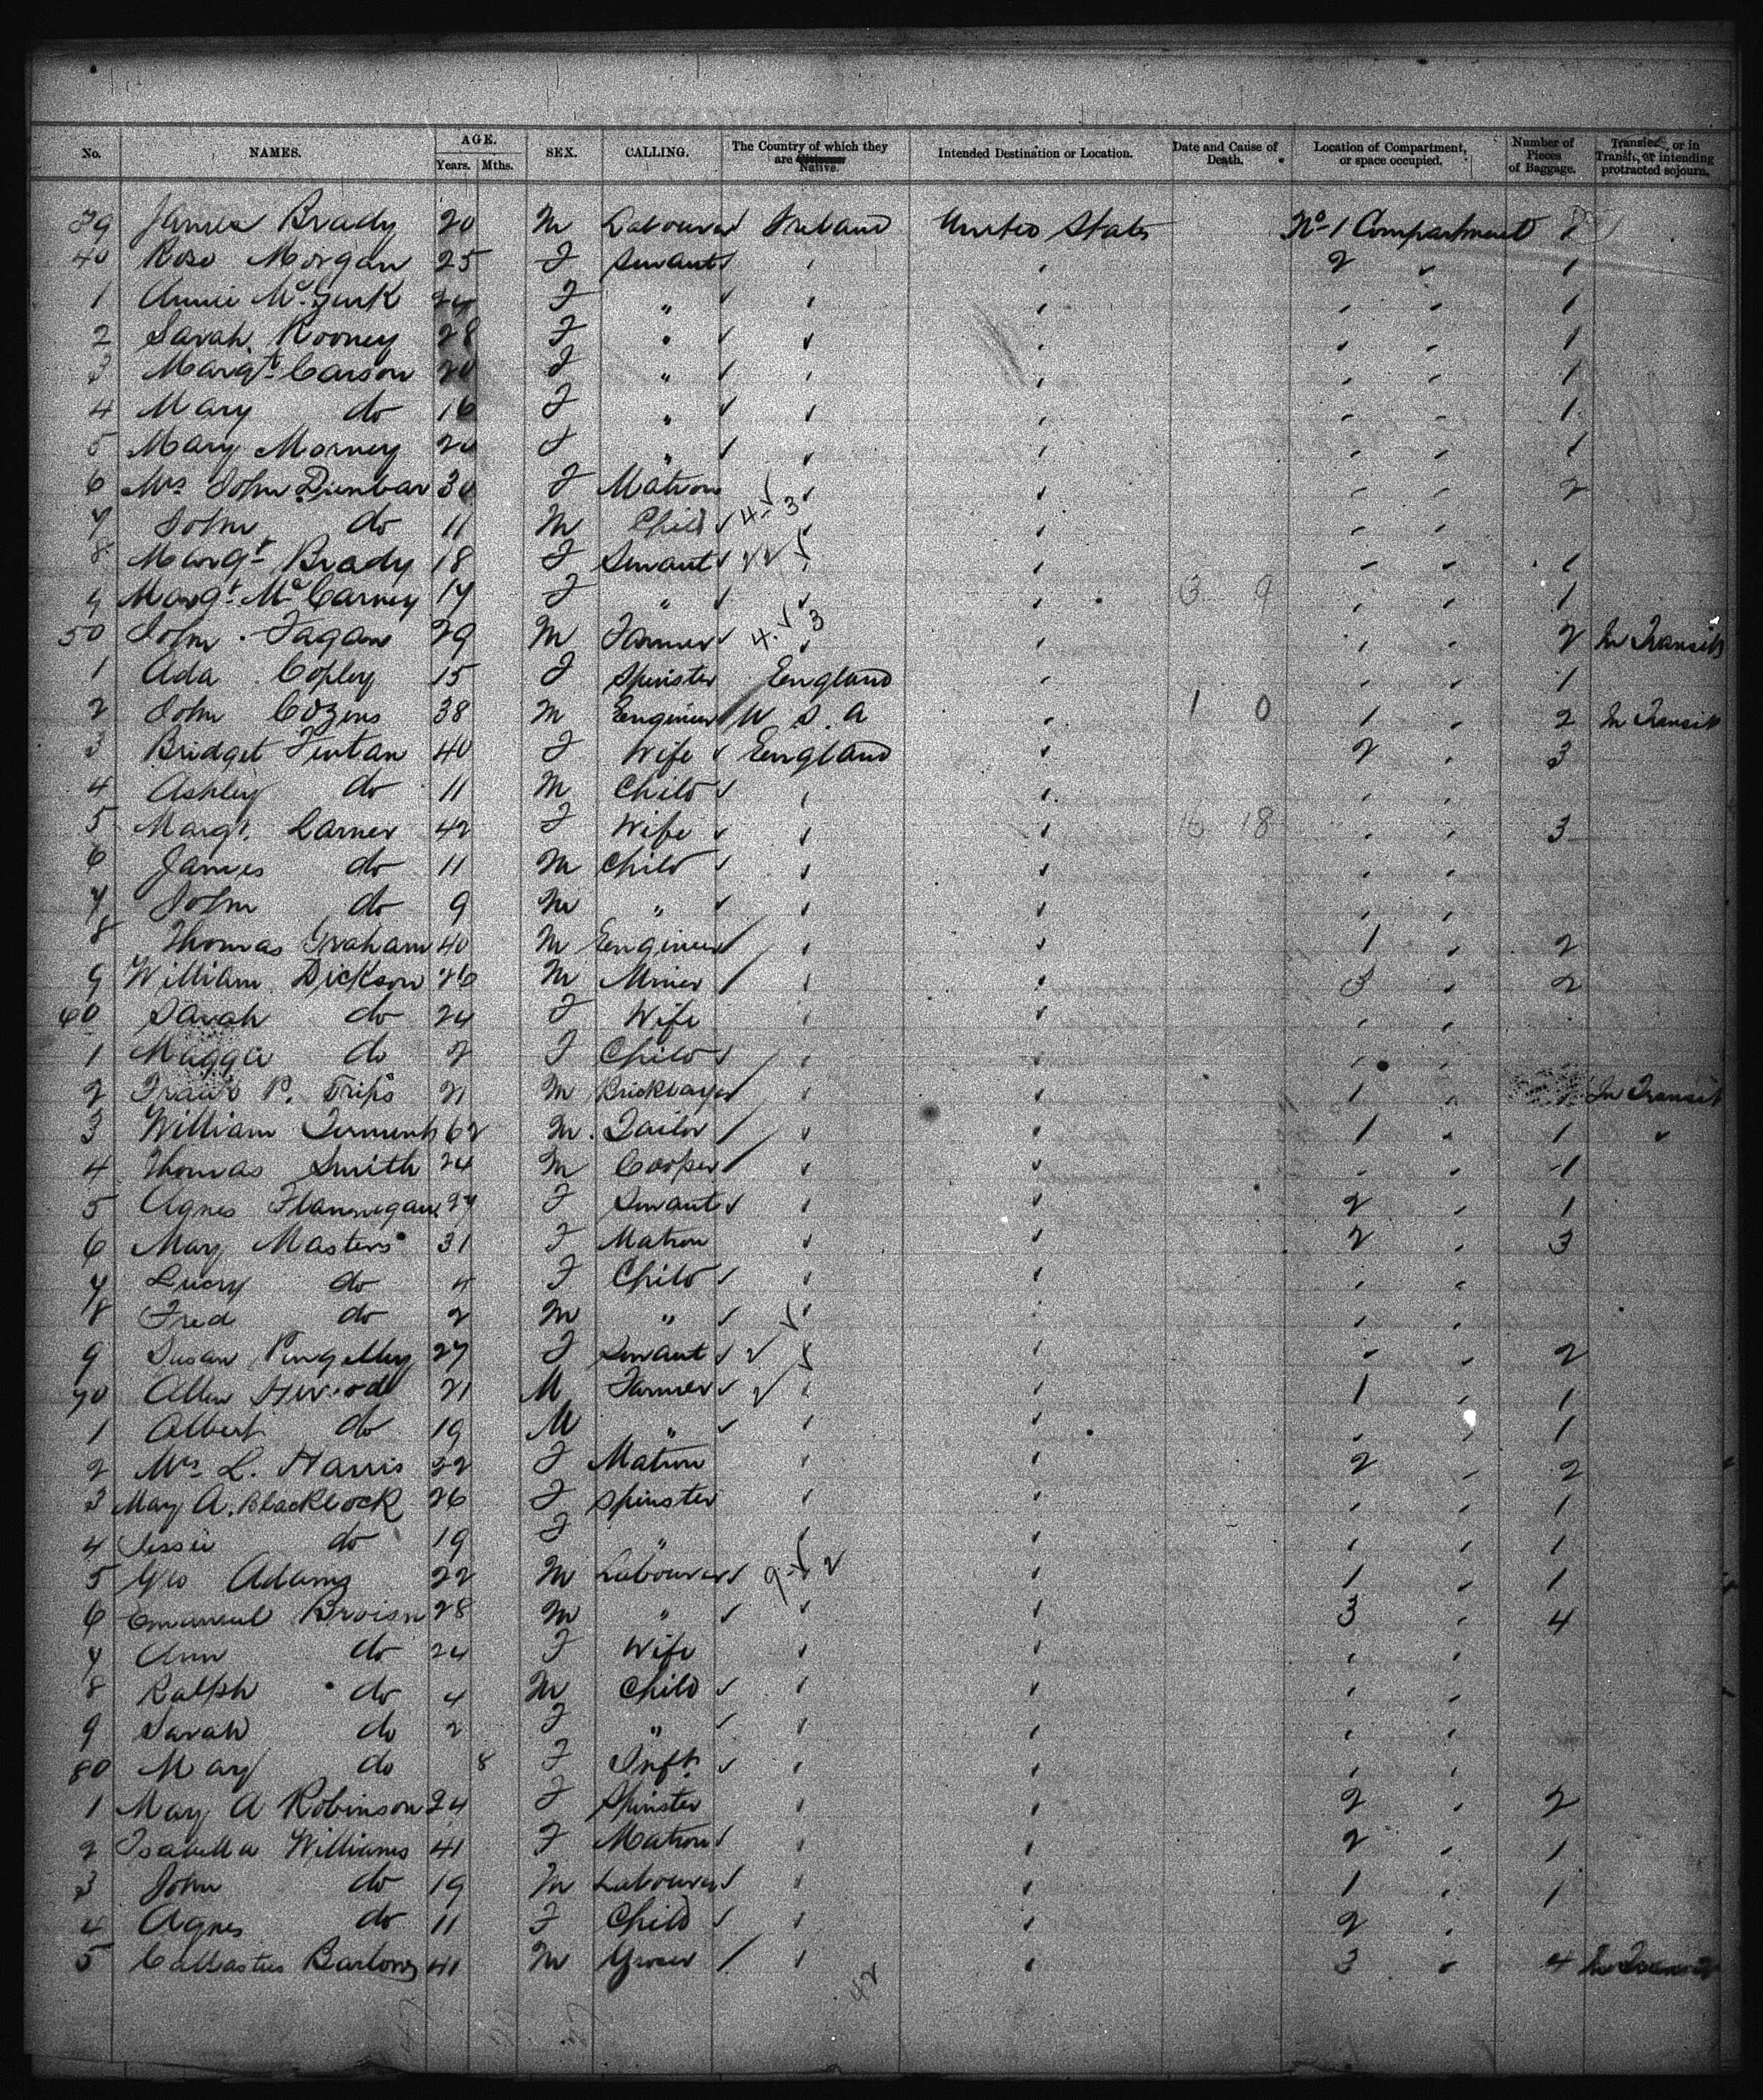 No. NAMES. AGE. Years. Mths. SEX. CALLING. The Country of which they are Citizens Native. Intended Destination or Location. Date and Cause of Death. Location of Compartment, or space occupied. Number of Pieces of Baggage. Transient, or in Transit, or intending protracted sojourn.
39 James Brady 20 M Labourer Ireland United States No 1 Compartment 1
40 Rose Morgan 25 F Servant " " 2 " 1
1 Annie McGurk 24 F " " " " " 1
2 Sarah Rooney 28 F " " " " " 1
3 Margt Carson 20 F " " " " " 1
4 Mary do 16 F " " " " " 1
5 Mary Morney 20 F " " " " " 1
6 Mrs John Dunbar 30 F Matron " " " " 2
7 John do 11 M Child " " " "
8 Margt Brady 18 F Servant " " " " 1
9 Margt McCarney 17 F " " " 3 9 " " 1
50 John Fagan 29 M Farmer 4 3 " " " " 2 In Transit
1 Ada Copley 15 F Spinster England " " " 1
2 John Cozens 38 M Engineer U S A " 1 0 1 " 2 In Transit
3 Bridget Fintan 40 F Wife England " 2 " 3
4 Ashley do 11 M Child " " " "
5 Margt. Larner 42 F Wife " " 16 18 " " 3
6 James do 11 M Child " " " "
7 John do 9 M " " " " "
8 Thomas Graham 40 M Engineer " " 1 " 2
9 William Dickson 26 M Miner " " 3 " 2
60 Sarah do 24 F Wife " " " "
1 Maggie do 2 F Child " " " "
2 Frank P. Trips 21 M Bricklayer " " 1 " 1 In Transit
3 William Torments 62 M. Tailor " " 1 " 1 "
4 Thomas Smith 24 M Cooper " " " " 1
5 Agnes Flannegan 27 F Servant " " 2 " 1
6 May Masters 31 F Matron " " 2 " 3
7 Lucy do 4 F Child " " " "
8 Fred do 2 M " " " " "
9 Susan Pingelley 27 F Servant " " " " 2
70 Allen 21 M Farmer " " 1 " 1
1 Albert do 19 M " " " " " 1
2 Mrs L. Harris 32 F Matron " " 2 " 2
3 May A. Blacklock 26 F Spinster " " " " 1
4 Jessie do 19 F " " " " " 1
5 Geo Adams 22 M Labourer " " 1 " 1
6 Emanuel 28 M " " " 3 " 4
7 Ann do 24 F Wife " " " "
8 Ralph do 4 M Child " " " "
9 Sarah do 2 F " " " " "
80 Mary do 8 F Inft. " " " "
1 May A Robinson 24 F Spinster " " 2 " 2
2 Isabella Williams 41 F Matron " " 2 " 1
3 John do 19 M Labourer " " 1 " 1
4 Agnes do 11 F Child " " 2 "
5 Barlows 41 M Grocer " " 3 " 4 In Transit
42